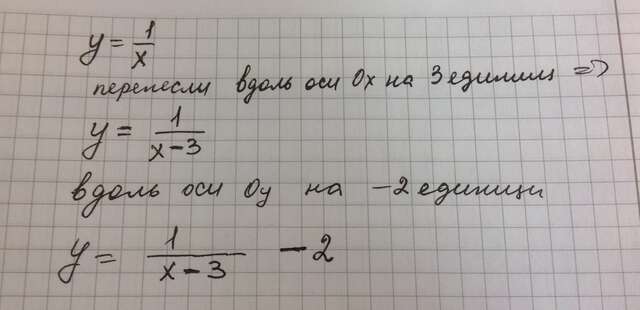 y = 1/x
перенесли вдоль оси Ox на 3 единиц =>
y = 1/(x-3)
вдоль оси Oy на -2 единици
y = 1/(x-3) - 2